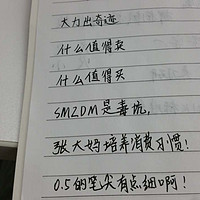 大力出奇迹
什么值得卖
什么值得买
SMZDM是毒坑,
张大妈培养消费习惯!
0.5的笔尖有点细啊!